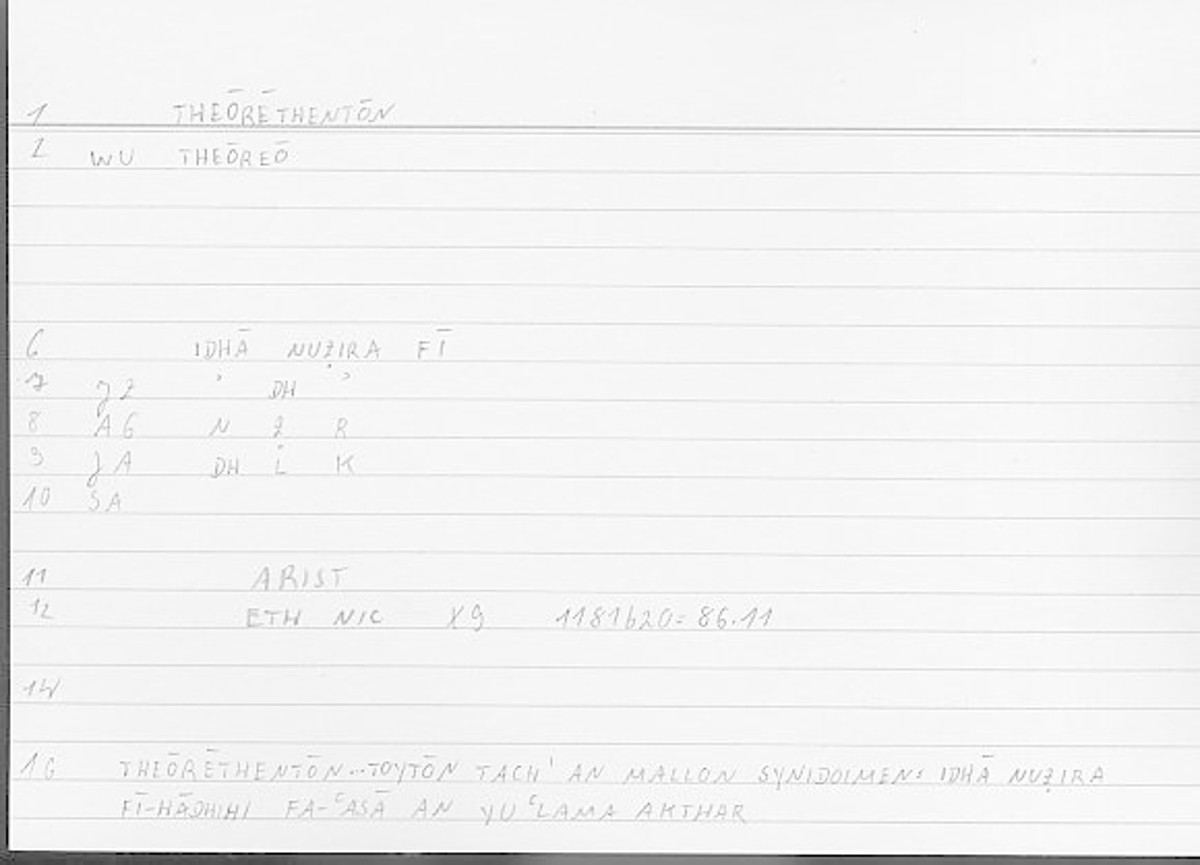 1 THEŌRĒTHENTŌN
2 WU THEŌREŌ
6 IDHĀ NUẒIRA FĪ
7 JZ ʾ DH ʾ
8 AG N Ẓ R
9 JA DH L K
10 SA
11 ARIST
12 ETH NIC X9 1181b20=86.11
14
16 THEŌRĒTHENTŌN...TOYTŌN TACH' AN MALLON SYNIDOIMEN: IDHĀ NUẒIRA
FĪ-HĀDHIHI FA-ʿASĀ AN YUʿLAMA AKTHAR